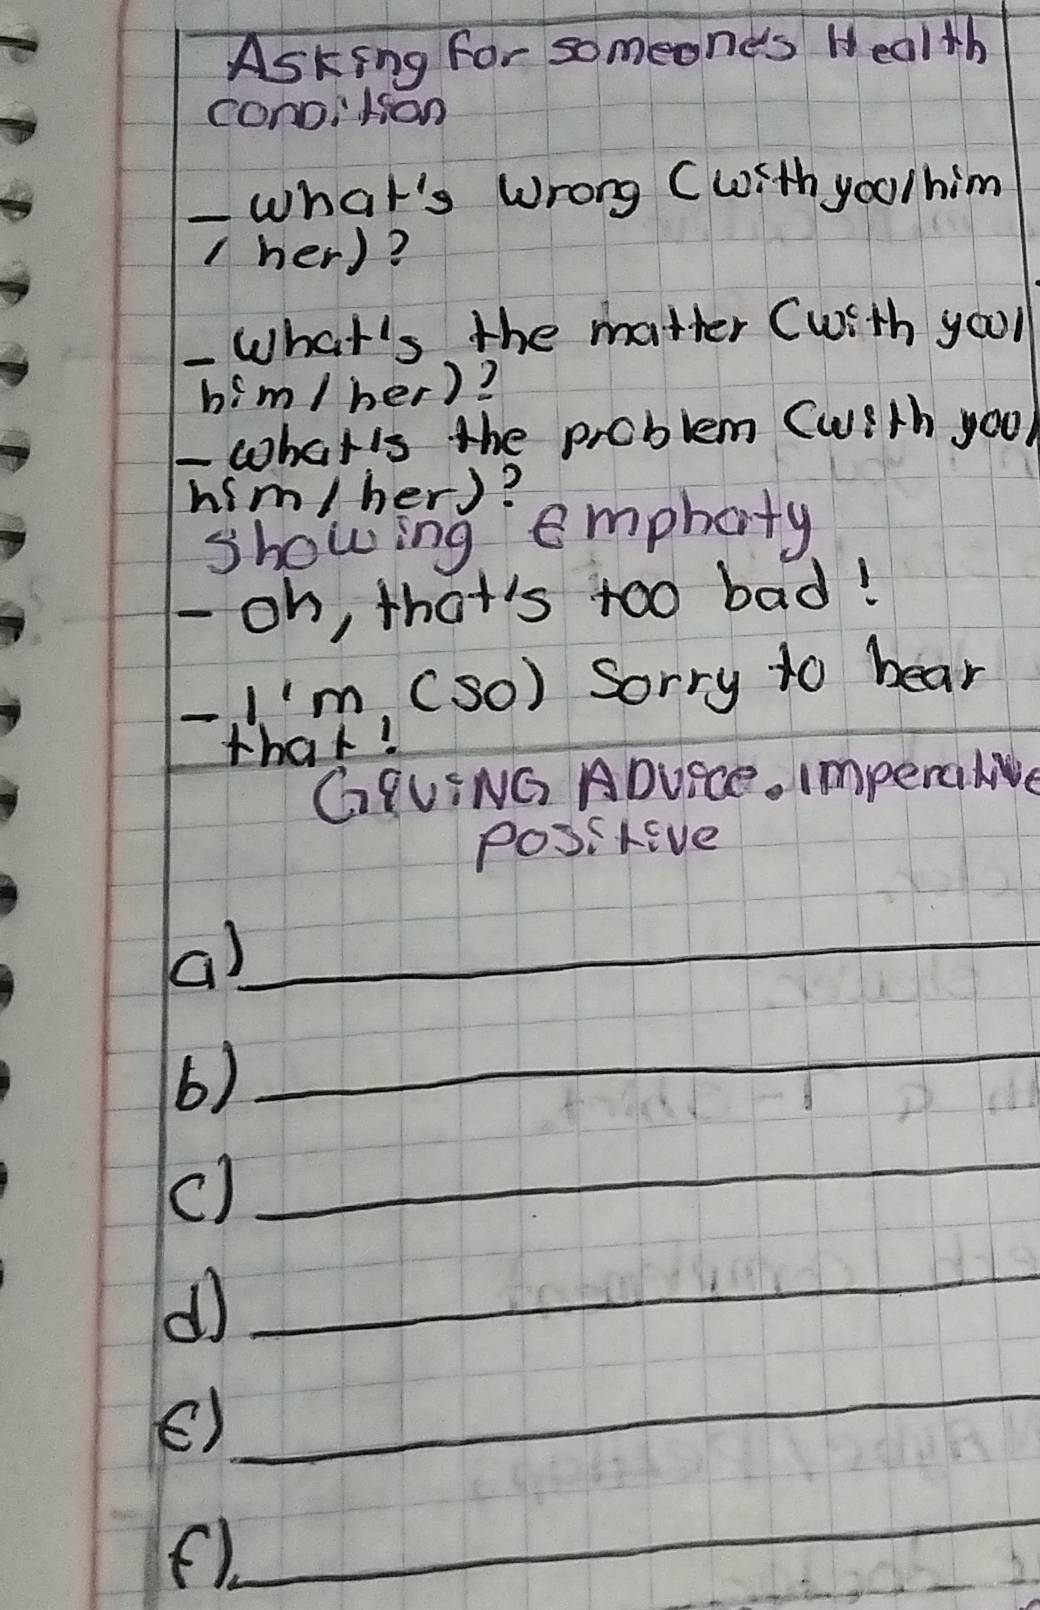 Asking For someone's Health
condition
- what's wrong (with you/him
/ her)?
- what's the matter (with you/
him/her)?
- what's the problem (with you/
him/her)?
showing emphaty
- oh, that's too bad!
- I'm (so) sorry to hear
that!
GiViNG ADVice. imperative
positive
a)
b)
c)
d)
e)
f)